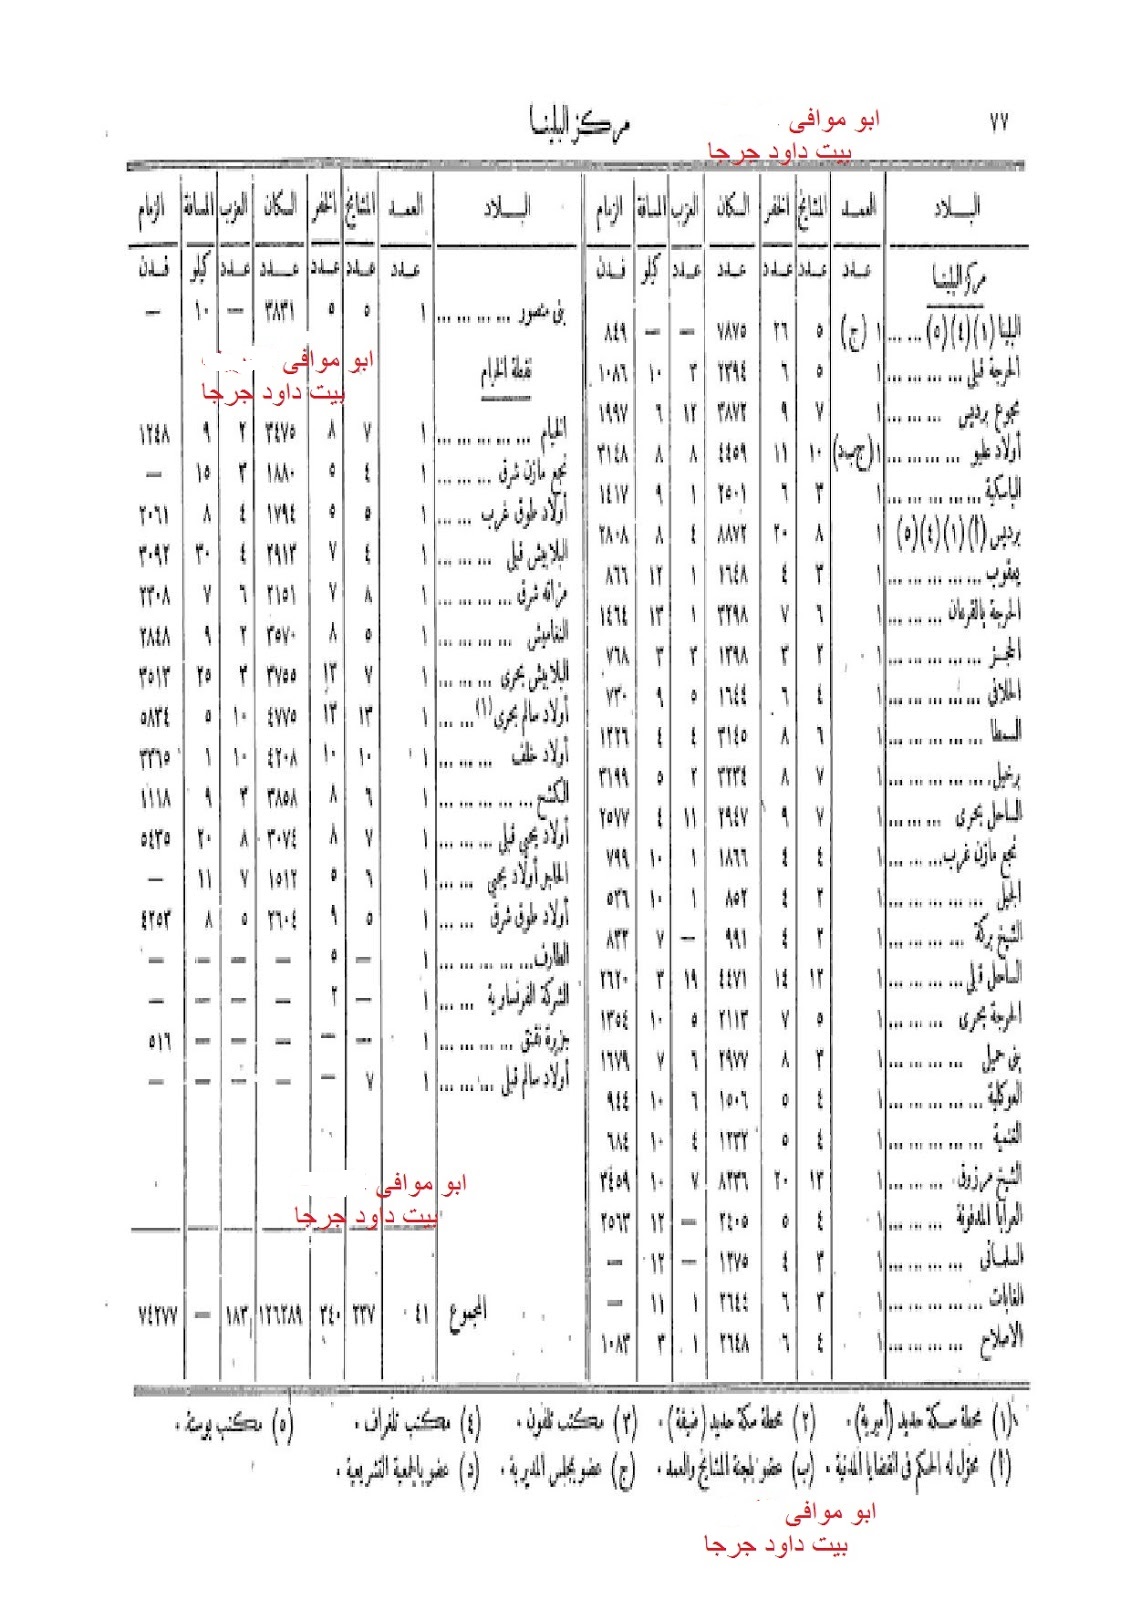 ٧٧
مركز البلينا
ابو موافى
بيت داود جرجا
البـلاد العمد المشايخ الخفر السكان العزب المسافة الزمام
عدد عدد عدد عدد عدد كيلو فدن
مركز البلينا
البلينا (١) (٤) (٥) ... ... ١ (ج) ٥ ٢٦ ٧٨٧٥ — — ٨٤٩
الحرجة قبلى ... ... ... ... ١ ٥ ٦ ٢٣٩٤ ٣ ١٠ ١٠٨٦
مجموع برديس ... ... ... ١ ٧ ٩ ٣٨٧٢ ١٢ ٦ ١٩٩٧
أولاد عليو ... ... ... ... ١ (ج ب د) ١٠ ١١ ٤٤٥٩ ٨ ٨ ٣١٤٨
الباسكية ... ... ... ... ... ١ ٣ ٦ ٢٥٠١ ١ ٩ ١٤١٧
برديس (أ) (١) (٤) (٥) ١ ٨ ٢٠ ٨٨٧٢ ٤ ٨ ٢٨٠٨
يعقوب ... ... ... ... ... ١ ٣ ٤ ١٦٤٨ ١ ١٢ ٨٦٦
الحرجة بالقرمان ... ... ... ١ ٦ ٧ ٣٢٩٨ ١ ١٣ ١٤٦٤
الحجز ... ... ... ... ... ١ ٢ ٣ ١٣٩٨ ٣ ٣ ٧٦٨
الخلافى ... ... ... ... ... ١ ٤ ٦ ١٦٤٤ ٥ ٩ ٧٣٠
السمطا ... ... ... ... ... ١ ٦ ٨ ٣١٤٥ ٤ ٤ ١٣٢٦
برخيل ... ... ... ... ... ١ ٧ ٨ ٣٢٣٤ ٢ ٥ ٣١٩٩
الساحل بحرى ... ... ... ١ ٧ ٩ ٢٩٤٧ ١١ ٤ ٢٥٧٧
نجع مازن غرب ... ... ... ١ ٤ ٤ ١٨٦٦ ١ ١٠ ٧٩٩
الجبل ... ... ... ... ... ١ ٢ ٤ ٨٥٢ ١ ١٠ ٥٣٦
الشيخ بركة ... ... ... ... ١ ٢ ٤ ٩٩١ — ٧ ٨٣٢
الساحل قبلى ... ... ... ... ١ ١٢ ١٤ ٤٤٧١ ١٩ ٣ ٢٦٢٠
الحرجة بحرى ... ... ... ١ ٥ ٧ ٢١١٣ ٥ ١٠ ١٣٥٤
بنى حميل ... ... ... ... ١ ٣ ٨ ٢٩٧٧ ٦ ٧ ١٦٧٩
العوكلية ... ... ... ... ... ١ ٤ ٥ ١٥٠٦ ٦ ١٠ ٩٤٤
الغنمية ... ... ... ... ... ١ ٤ ٥ ١٢٣٢ ٤ ١٠ ٦٨٤
الشيخ مرزوق ... ... ... ١ ١٣ ٢٠ ٨٢٣٦ ٧ ١٠ ٣٤٥٩
العرابا المدفونة ... ... ... ١ ٤ ٥ ٢٤٠٥ — ١٢ ٢٥٦٣
السلمانى ... ... ... ... ١ ٣ ٤ ١٢٧٥ — ١٢ —
الغابات ... ... ... ... ... ١ ٣ ٦ ٢٦٤٤ ١ ١١ —
الاصلاح ... ... ... ... ١ ٤ ٦ ٢٦٤٨ ١ ٣ ١٠٨٣
البـلاد العمد المشايخ الخفر السكان العزب المسافة الزمام
عدد عدد عدد عدد عدد كيلو فدن
بنى منصور ... ... ... ... ١ ٥ ٥ ٣٨٣١ — ١٠ —
ابو موافى
بيت داود جرجا
نقطة الخيام
الخيام ... ... ... ... ... ١ ٧ ٨ ٣٤٧٥ ٢ ٩ ١٢٤٨
نجع مازن شرق ... ... ... ١ ٤ ٥ ١٨٨٠ ٣ ١٥ —
أولاد طوق غرب ... ... ١ ٥ ٥ ١٧٩٤ ٤ ٨ ٢٠٦١
البلابيش قبلى ... ... ... ١ ٤ ٧ ٢٩١٣ ٤ ٣٠ ٣٠٩٢
مزاته شرق ... ... ... ... ١ ٨ ٧ ٢١٥١ ٦ ٧ ٢٣٠٨
النغاميش ... ... ... ... ١ ٥ ٨ ٣٥٧٠ ٢ ٩ ٢٨٤٨
البلابيش بحرى ... ... ... ١ ٧ ١٣ ٣٧٥٥ ٣ ٢٥ ٣٥١٣
أولاد سالم بحرى (١) ... ... ١ ١٣ ١٣ ٤٧٧٥ ١٠ ٥ ٥٨٣٤
أولاد خلف ... ... ... ١ ١٠ ١٠ ٤٢٠٨ ١٠ ١ ٣٣٦٥
الكشح ... ... ... ... ... ١ ٦ ٨ ٣٨٥٨ ٣ ٩ ١١١٨
أولاد يحيى قبلى ... ... ... ١ ٧ ٨ ٣٠٧٤ ٨ ٢٠ ٥٤٣٥
الحاجر أولاد يحيى ... ... ١ ٦ ٥ ١٥١٢ ٧ ١١ —
أولاد طوق شرق ... ... ١ ٥ ٩ ٢٦٠٤ ٥ ٨ ٤٢٥٣
الطارف ... ... ... ... ... ١ — ٥ — — — —
الشركة الفرنساوية ... ... ١ — ٢ — — — —
جزيرة نقنق ... ... ... ... ١ — — — — — ٥١٦
أولاد سالم قبلى ... ... ... ١ ٧ — — — — —
ابو موافى
بيت داود جرجا
المجموع ٤١ ٢٣٧ ٣٤٠ ١٢٦٢٨٩ ١٨٣ — ٧٤٢٧٧
(١) محطة سكة حديد (أميرية) ٠ (٢) محطة سكة حديد (ضيقة) ٠ (٣) مكتب تلفون ٠ (٤) مكتب تلغراف ٠ (٥) مكتب بوستة ٠
(أ) مخول له الحكم فى القضايا المدنية ٠ (ب) عضو بلجنة المشايخ والعمد ٠ (ج) عضو بمجلس المديرية ٠ (د) عضو بالجمعية التشريعية ٠
ابو موافى
بيت داود جرجا